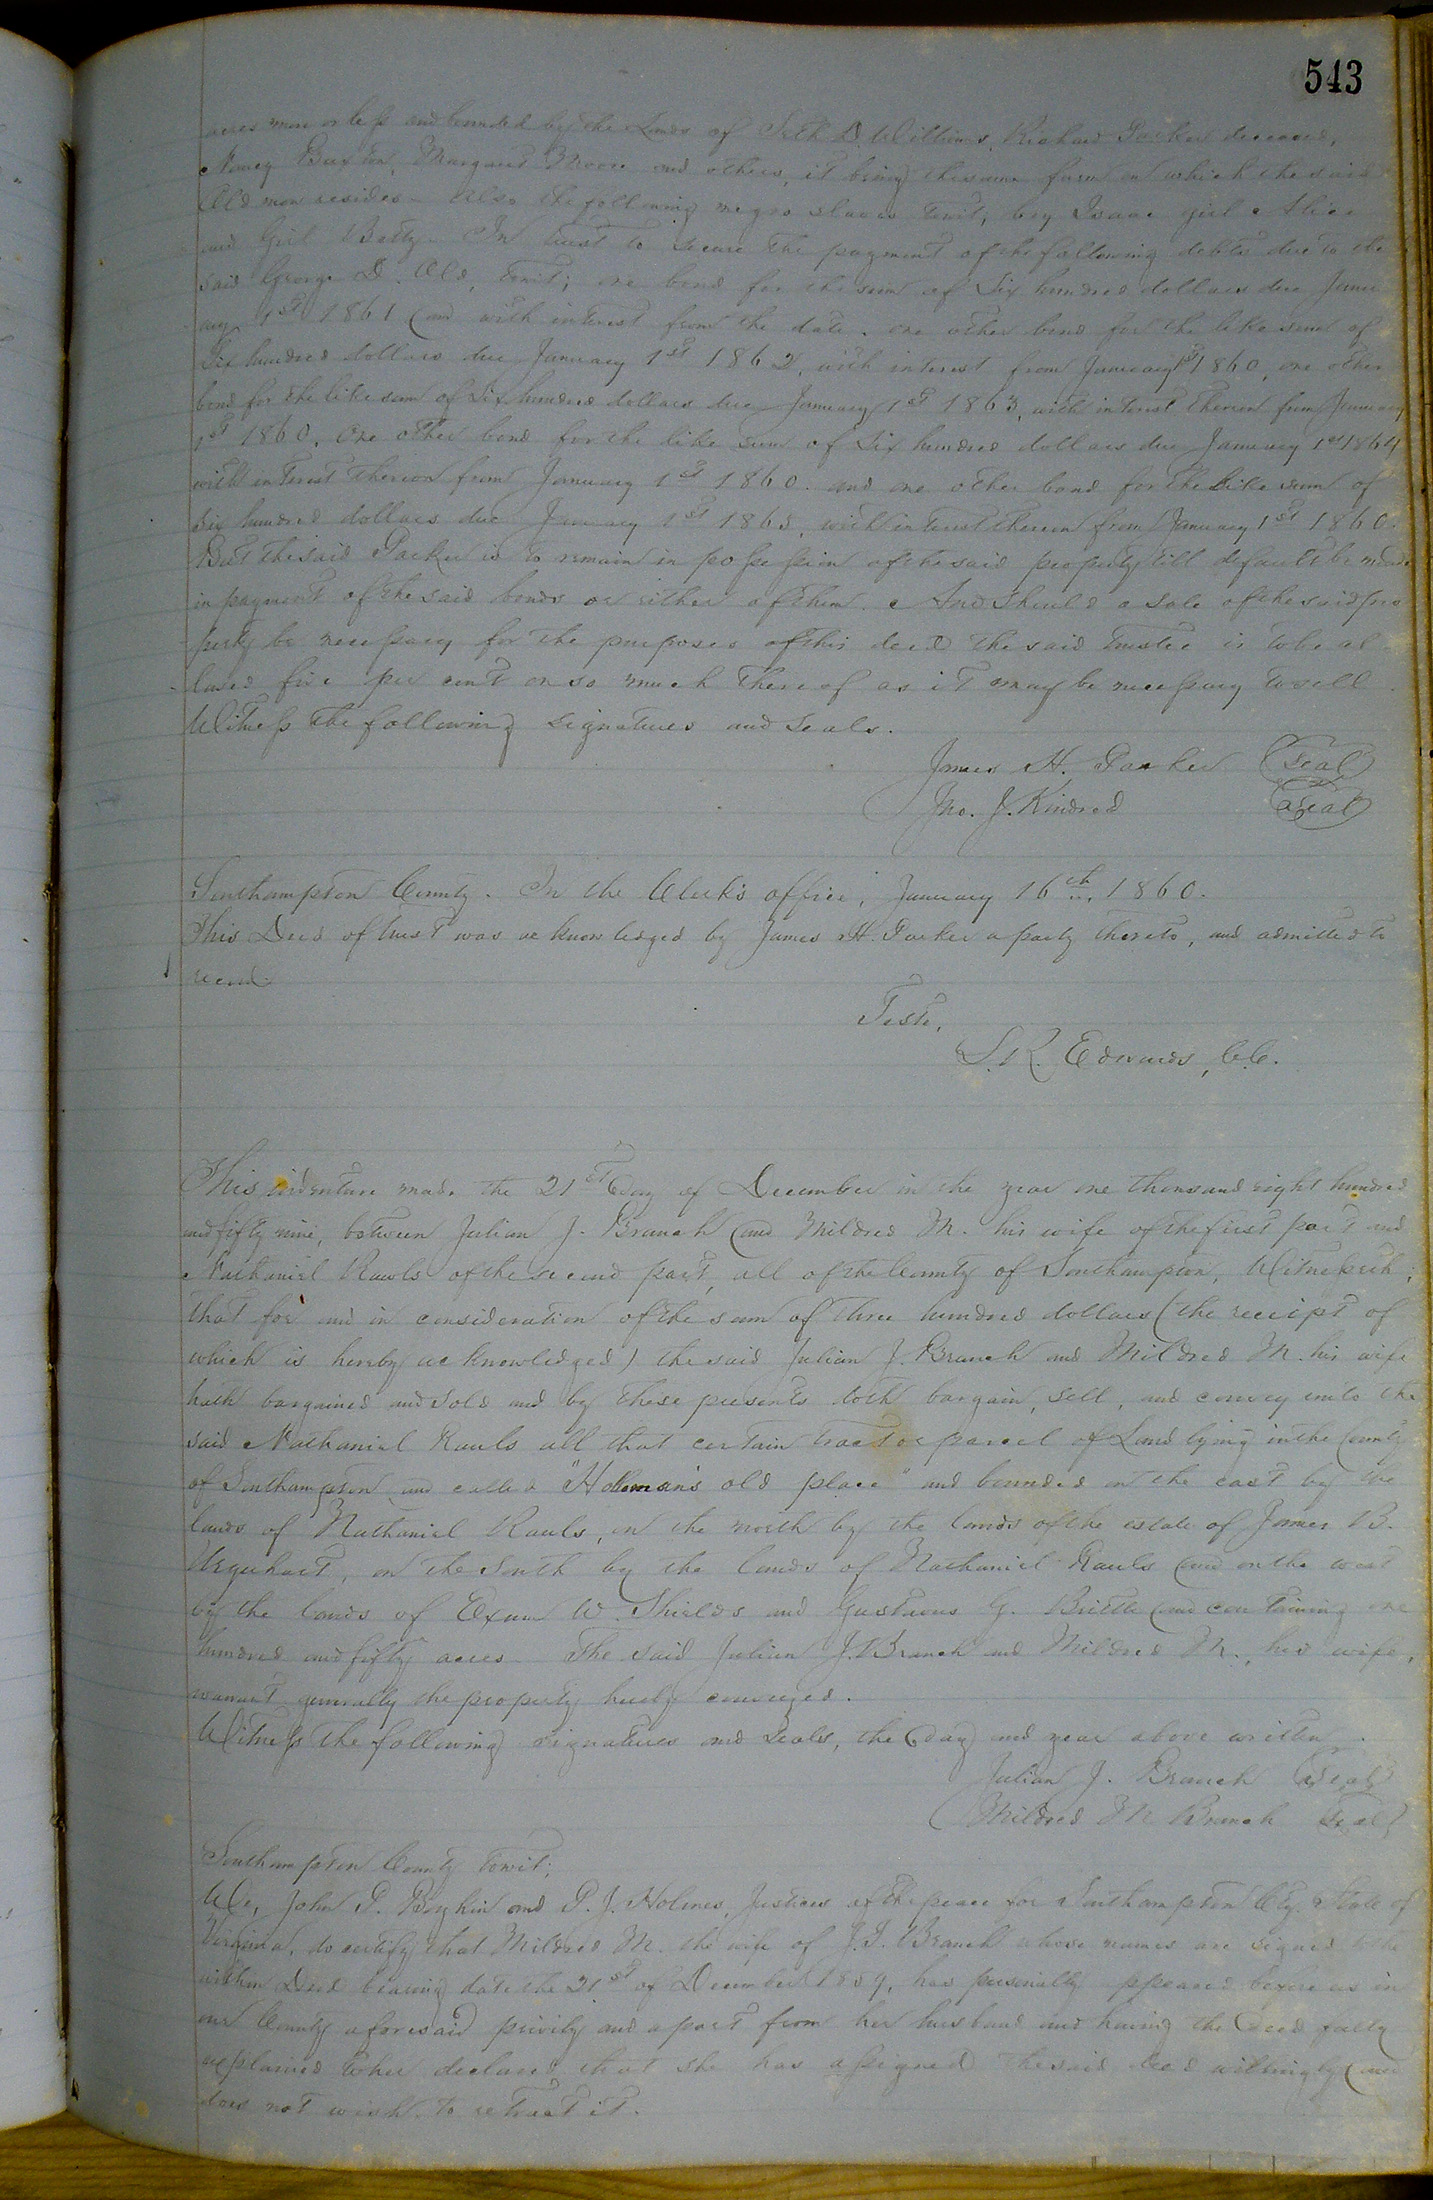 543
acres more or less and bounded by the Lands of Seth D. Williams, Richard Parker deceased,
Nancy Buxton, Margaret Moore and others, it being the same farm on which the said
Old man resides - also the following negro slaves towit, boy Isaac girl Alice
and Girl Betty - In trust to secure the payment of the following debts due to the
said George D. Old, towit; one bond for the sum of Six hundred dollars due Janu
ary 1st 1861 and with interest from the date. one other bond for the like sum of
Six hundred dollars due January 1st 1862, with interest from January 1st 1860, one other
bond for the like sum of Six hundred dollars due January 1st 1863, with interest thereon from January
1st 1860, One other bond for the like sum of Six hundred dollars due January 1st 1864
with interest thereon from January 1st 1860. and one other bond for the like sum of
six hundred dollars due January 1st 1865, with interest thereon from January 1st 1860.
But the said Parker is to remain in possession of the said property till default be made
in payment of the said bonds or either of them. And should a sale of the said pro
perty be necessary for the purposes of this deed the said trustee is to be al
lowed five per cent on so much thereof as it may be necessary to sell.
Witness the following signatures and seals.
James H. Parker (Seal)
Jno. J. Kindred (Seal)
Southampton County. In the Clerk's office, January 16th, 1860.
This Deed of trust was acknowledged by James H. Parker a party thereto, and admitted to
record.
Teste,
L. R. Edwards, C.C.
This indenture made the 21st day of December in the year one thousand eight hundred
and fifty nine, between Julian J. Branch and Mildred M. his wife of the first part and
Nathaniel Rawls of the second part, all of the County of Southampton, Witnesseth;
that for and in consideration of the sum of three hundred dollars (the receipt of
which is hereby acknowledged) the said Julian J. Branch and Mildred M. his wife
hath bargained and sold and by these presents doth bargain, sell, and convey unto the
said Nathaniel Rawls all that certain tract or parcel of Land lying in the County
of Southampton and called "Holleman's old place" and bounded on the east by the
lands of Nathaniel Rawls, on the north by the lands of the estate of James B.
Urquhart, on the South by the lands of Nathaniel Rawls and on the west
by the lands of Exum W. Shields and Gustavus G. Brittle and containing one
hundred and fifty acres - The said Julian J. Branch and Mildred M., his wife,
warrant generally the property hereby conveyed.
Witness the following signatures and Seals, the day and year above written.
Julian J. Branch (Seal)
Mildred M Branch (Seal)
Southampton County towit;
We, John P. Boykin and P. J. Holmes, Justices of the peace for Southampton Cty. State of
Virginia, do certify that Mildred M. the wife of J. J. Branch whose names are signed to the
within Deed bearing date the 21st of December 1859, has personally appeared before us in
our County aforesaid privily and apart from her husband and having the Deed fully
explained to her declared that she has assigned the said deed willingly and
does not wish to retract it.